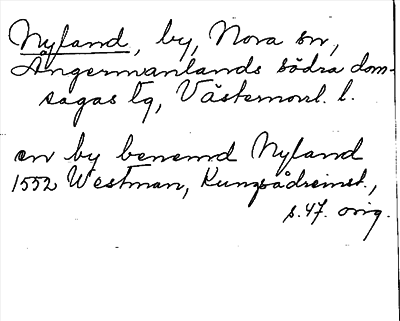 Nyland, by, Nora sn,
Ångermanlands södra dom-
sagas tg, Västernorrl. l.
en by benemd Nyland
1552 Westman, Kungsådreinst.,
s. 47. orig.